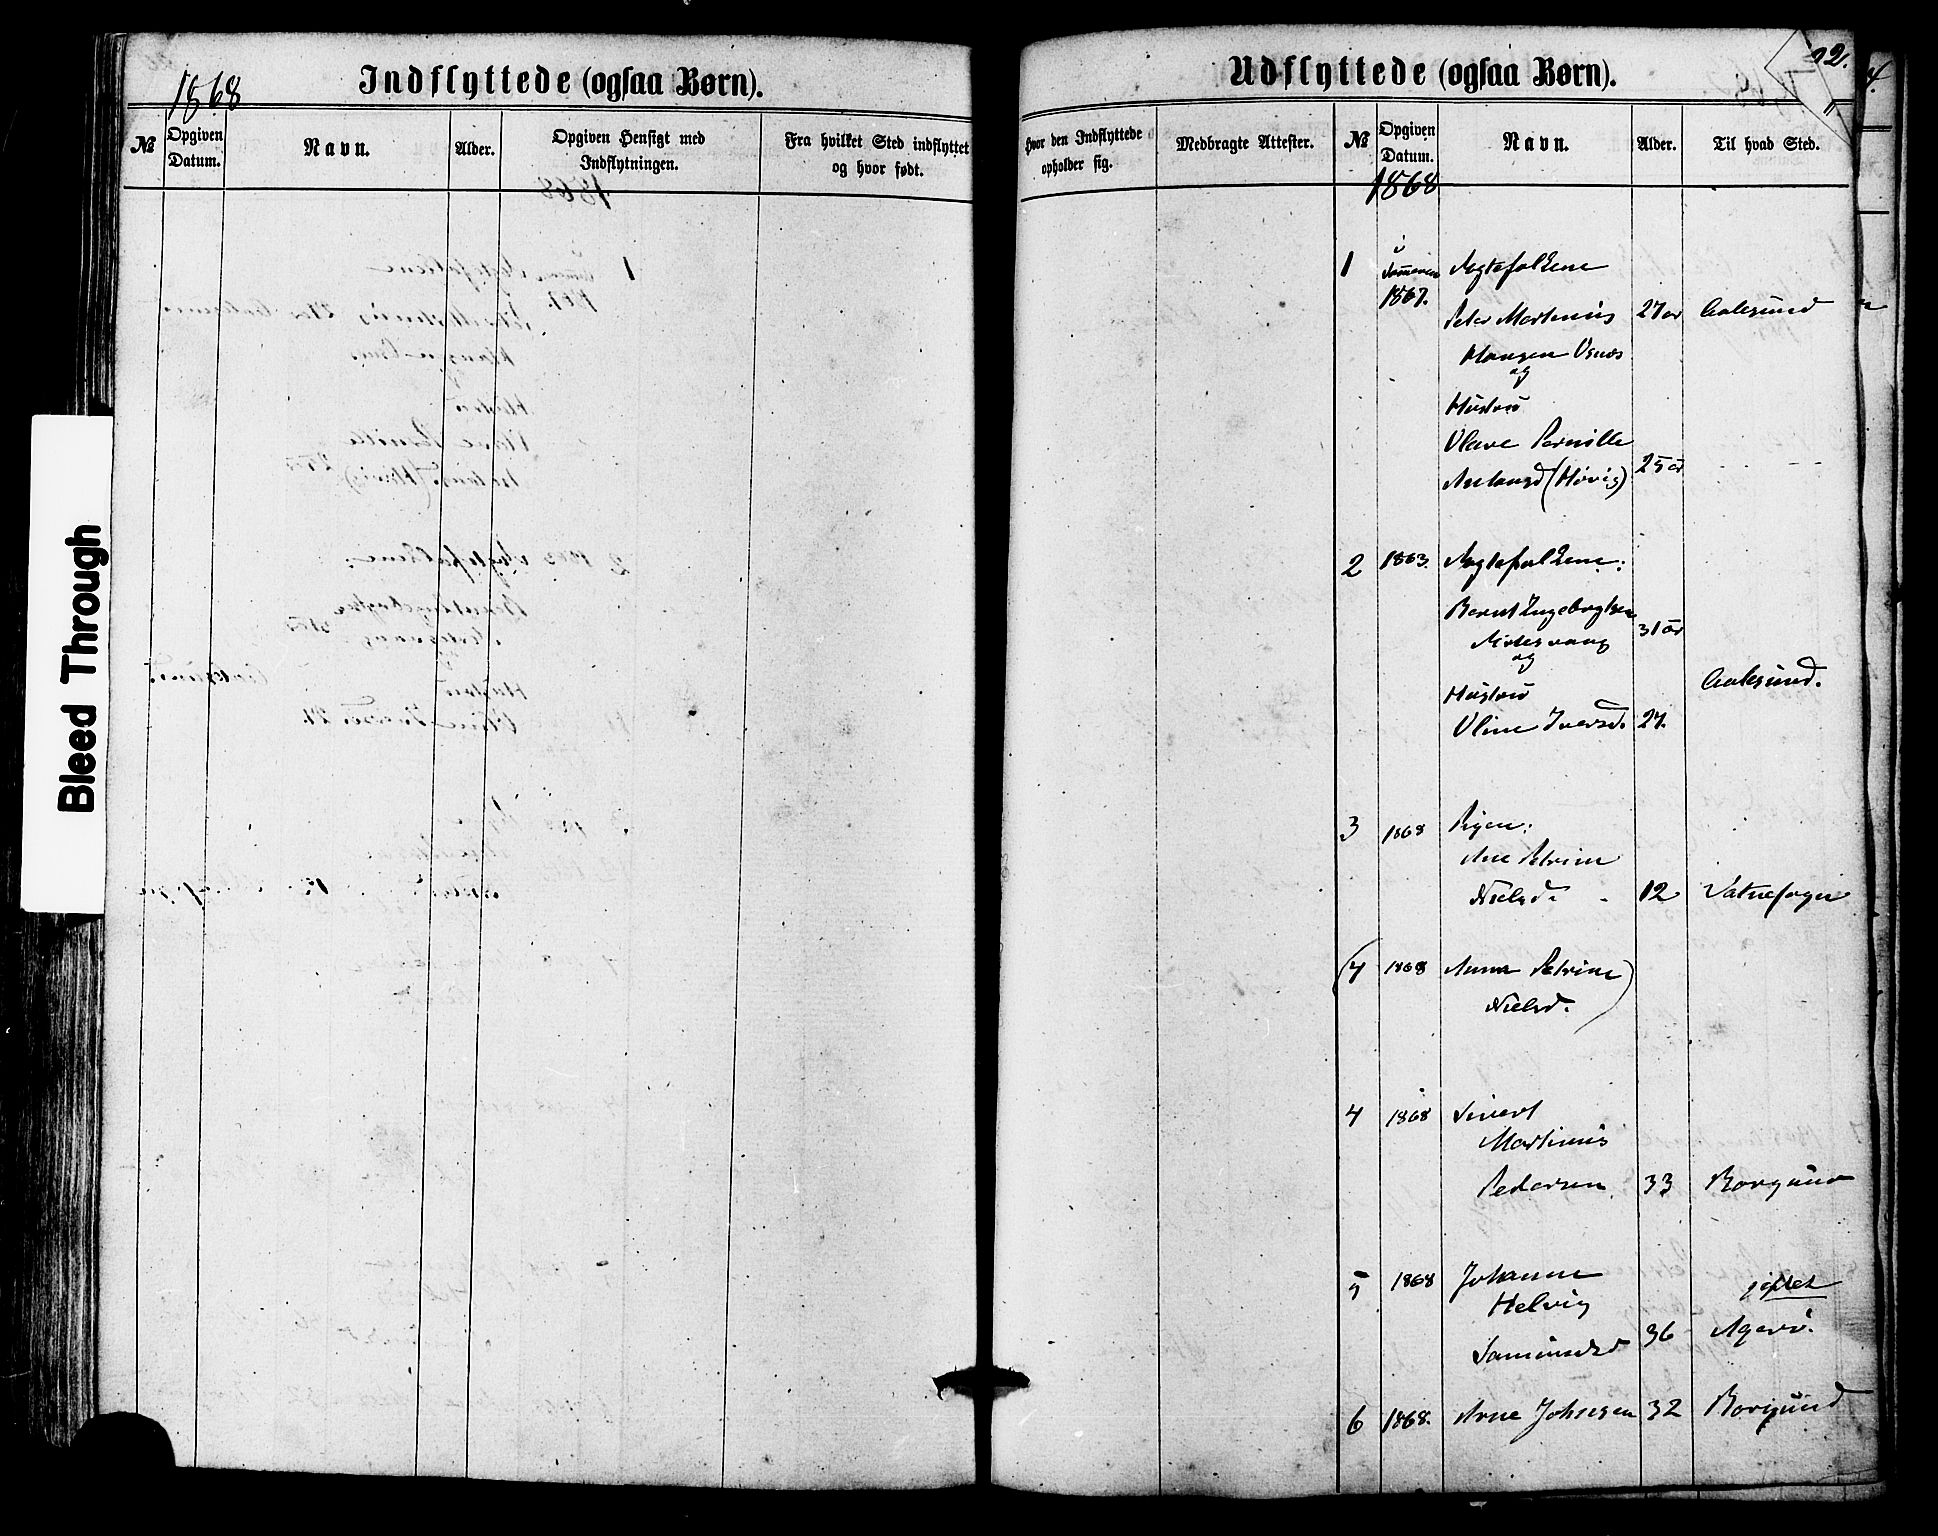 1868
Indflyttede (ogsaa Børn).
№
Opgiven Datum.
Navn.
Alder.
Opgiven Hensigt med Indflytningen.
Fra hvilket Sted indflyttet og hvor født.
Bleed Through
Udflyttede (ogsaa Børn).
Hvor den Indflyttede opholder sig.
Medbragte Attester.
№
Opgiven Datum.
Navn.
Alder.
Til hvad Sted.
1868
1 1867. Ægtefolkene
Peter Martinus 27 år Aalesund
og
Hustru
Olave Pernille
(Hovig) 25 år
2 1863. Ægtefolkene:
Bernt Ingebrigtsen
31 år
og
Hustru Aalesund.
Oline Iversd. 27.
3 1868 Pigen:
Ane Petrine
Nielsd. 12 Vatne
(4 1868 Anne Petrine)
Nielsd.
4 1868 Sivert
Martinus
Pedersen 33 Borgund
5 1868 Johanne giftet
Helvig
36 Agerö.
6 1868. Arne Johnsen 32 Borgund